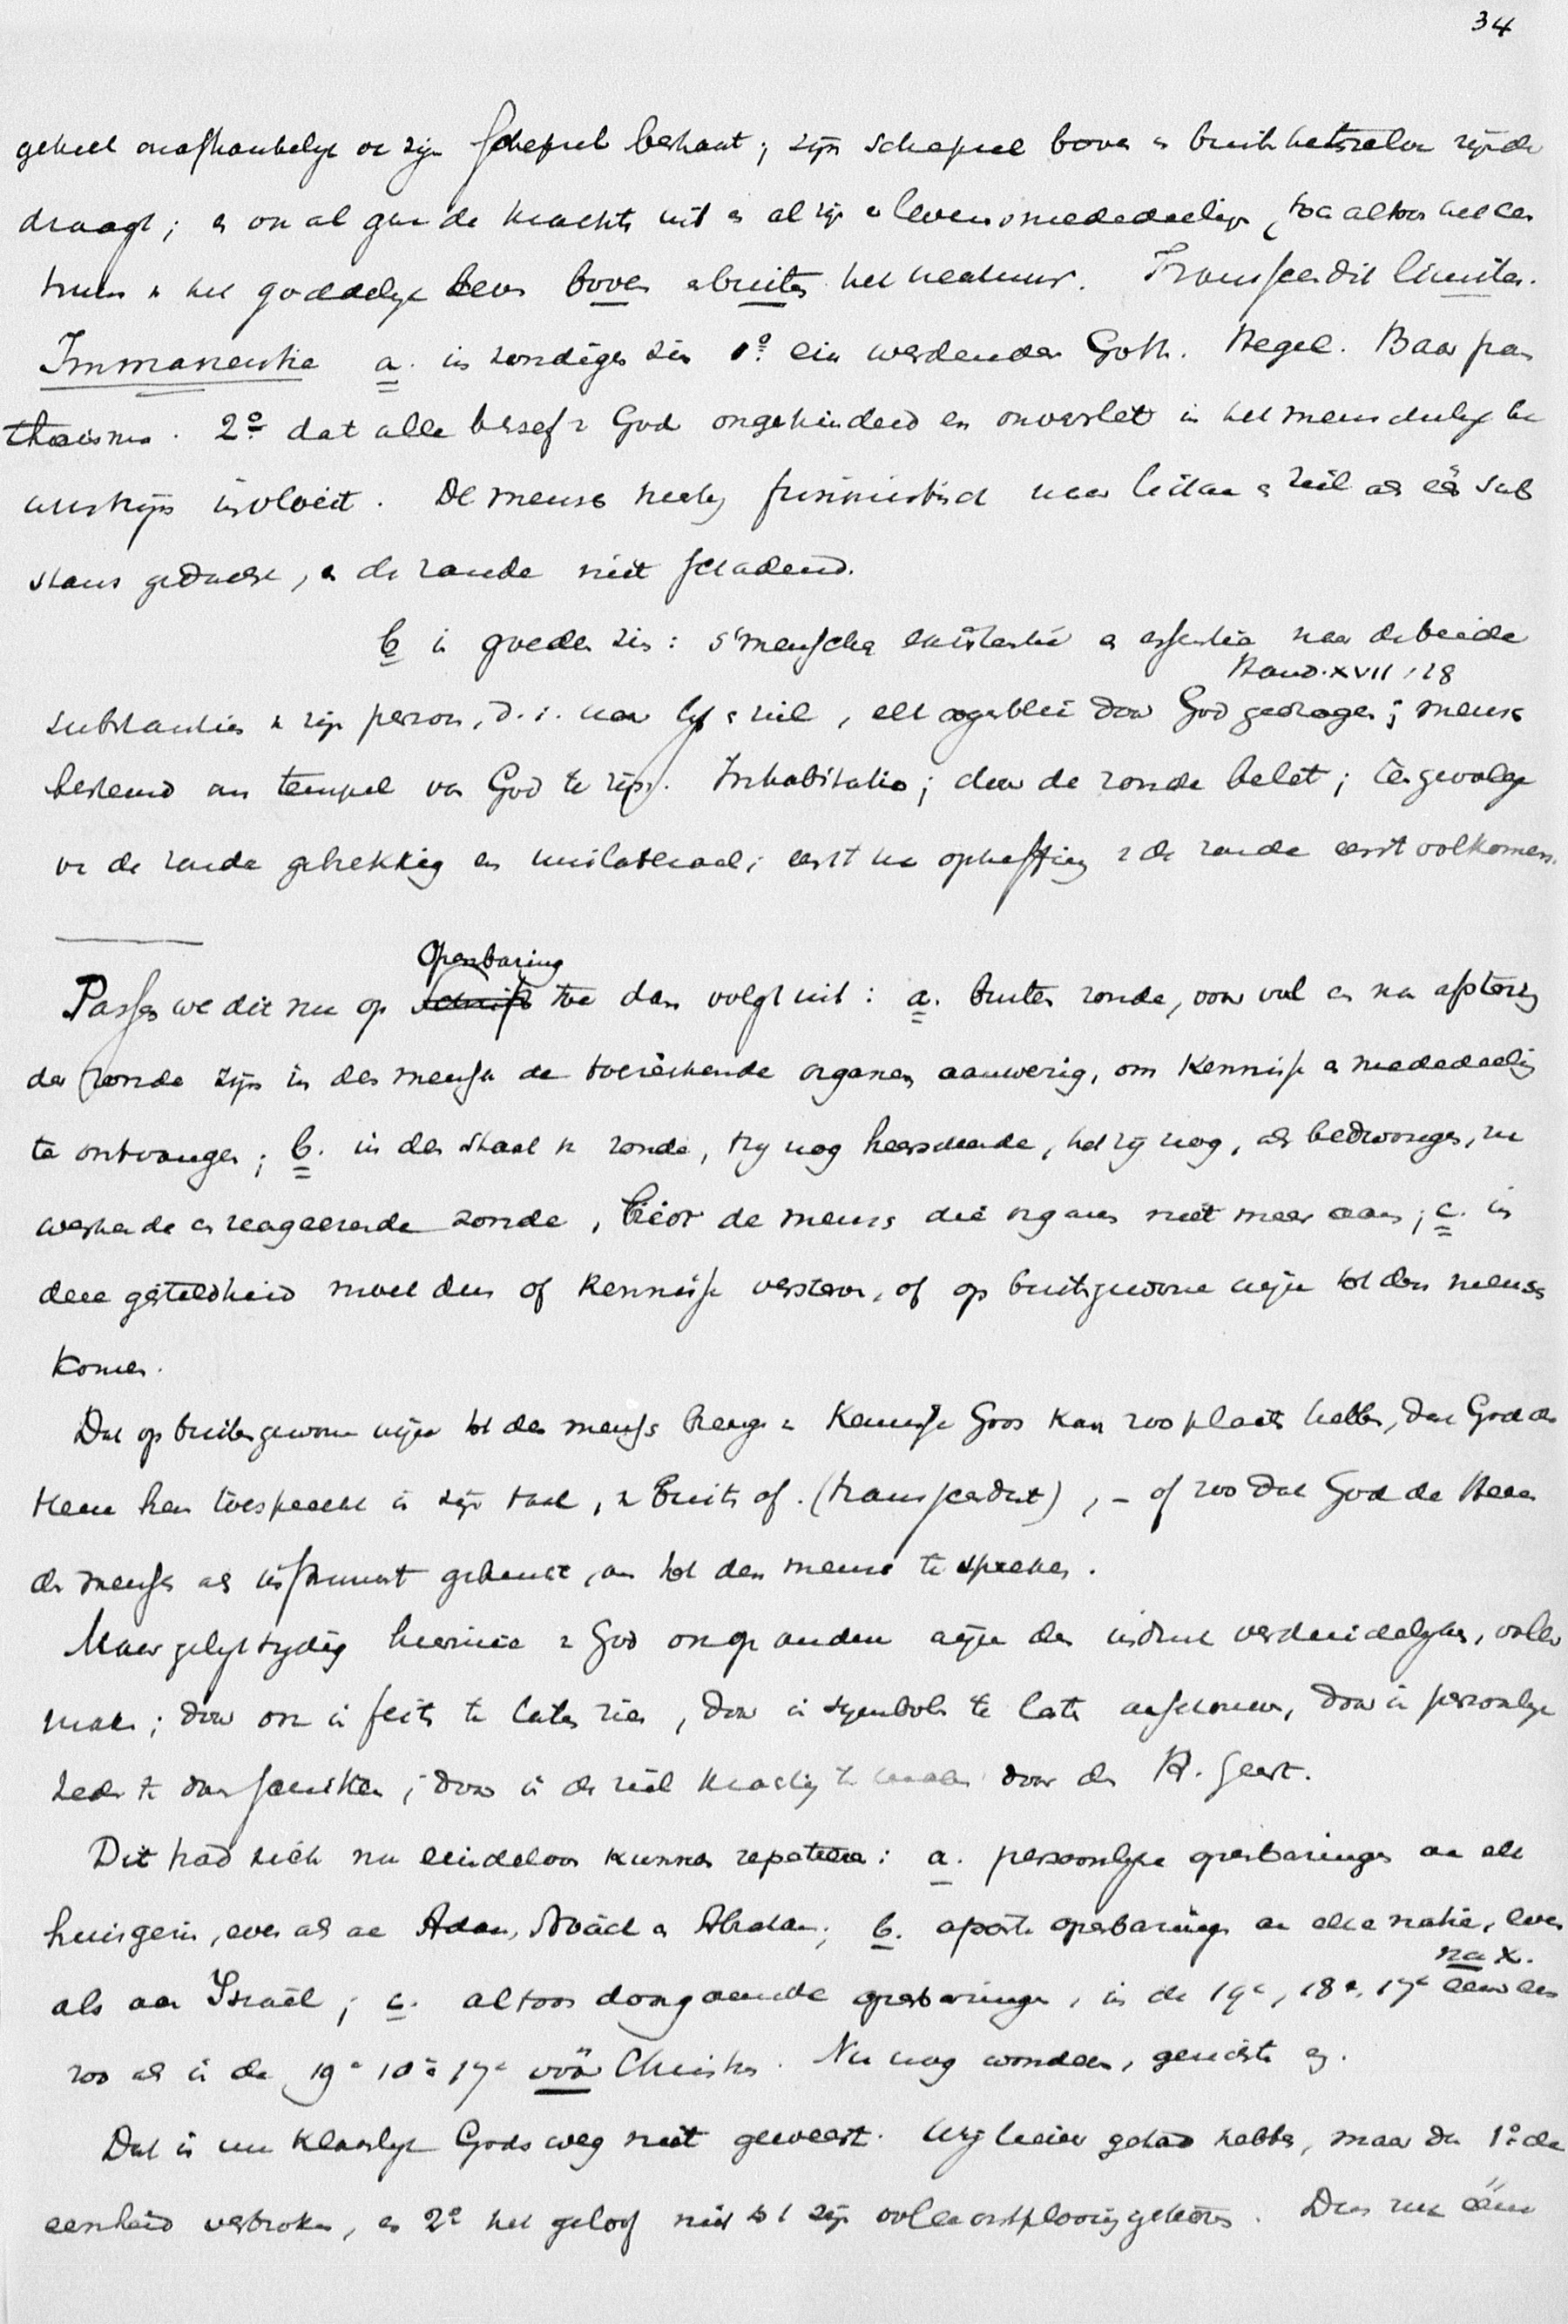 34
geheel onafhankelyk van zijn schepsel bestaat; zijn schepsel boven en buiten hetzelve zijnde
draagt; en om al gaande krachts uit en al zijn levensmededeeling, toch altoos het cen
trum v. het goddelyk leven boven en buiten het creatuur. Transcendit limites.
Immanentia a. in zondigen zin 1º. ein werdender Gott. Hegel. Baar pan
theisme. 2º dat alle besef v God ongehinderd en onverlet in het menschelijk be
wustzijn invloeit. De mensch naar lichaam en ziel als één sub
stans gedacht, en de zonde niet schadend.
b in goeden zin: 's menschen existentie en essentie naar de beide
Hand. XVII, 28
substantiën v. zijn persoon, d.i. naar lijf en ziel, elk ogenblik door God gedragen; mensch
bestemd om tempel van God te zijn. Inhabitatio; door de zonde belet; tengevolge
van de zonde gebrekkig en unilateraal; eerst na opheffing v de zonde eerst volkomen.
Openbaring
Passen we dit nu op Schrift toe dan volgt uit: a. buiten zonde, voor val en na afsterving
der zonde zijn in den mensch de toereikende organen aanwezig, om kennisse en mededeeling
te ontvangen; b. in den staat v. zonde, 't zij nog heerschende, hetzij nog, als bedwongen, na
werkende en reageerende zonde, biedt de mensch die organen niet meer aan; c. in
deze gesteldheid moet dus of kennisse versterven, of op buitengewone wijze tot den mensch
komen.
Dat op buitengewone wijze tot den mensch brengen v. kennisse Gods kan zoo plaats hebben, dat God de
Heere hem toespreekt in zijn taal, v. buiten af. (transcendent), – of zoo dat God de Heere
den mensch als instrument gebruikt, om tot den mensch te spreken.
Maar gelyktydig hiermee v God om op andere wijze den indruk verduidelyken, voller
maken; door om in feiten te laten zien, door in symbolen te laten aanschouwen, door in persoonlyk
heden te doen schitteren; door in de ziel krachtig te maken door den H. Geest.
Dit had zich nu eindeloos kunnen repeteeren: a. persoonlyke openbaringen aan elk
huisgezin, even als aan Adam, Noäch en Abraham; b. aparte openbaringen aan elke natie, even
na X.
als aan Israël; c. altoos doorgaande openbaringen, in de 19e, 18e, 17e eeuw een
zoo als in de 19e 18e 17e vóór Christus. Nu nog wonderen, gerichten ez.
Dat is nu klaarlyk Gods weg niet geweest. Wij hadden gehad hebben, maar dan 1º. de
eenheid verbroken, en 2º het geloof niet tot zijn volle ontplooiing gekomen. Dus nu ééne